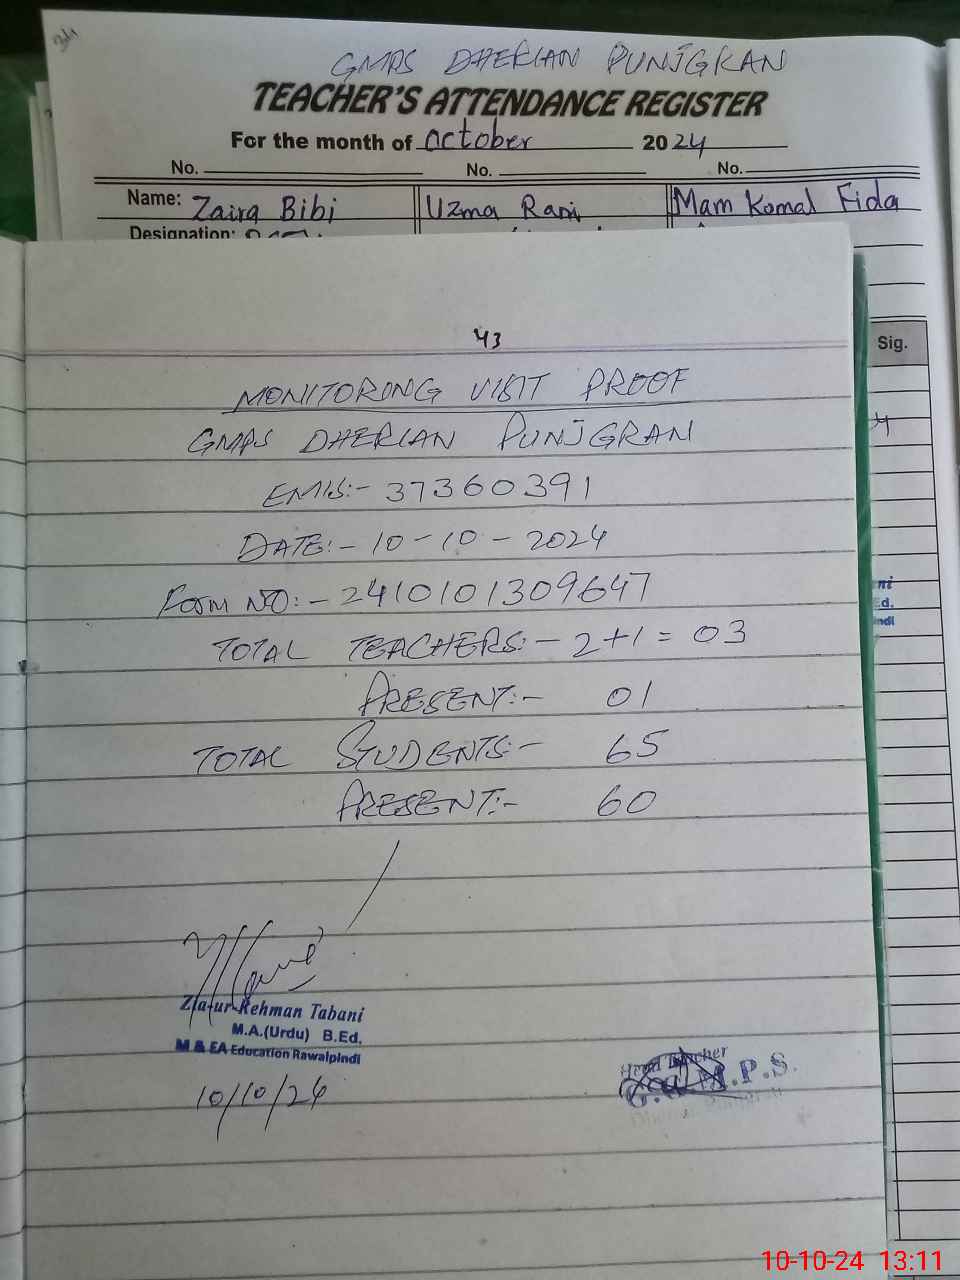 GMPS DHERIAN PUNJGRAN
TEACHER'S ATTENDANCE REGISTER
For the month of October 2024
No. No. No.
Name: Zaira Bibi Uzma Rani Mam Komal Fida
Designation:
Sig.
43
MONITORING VISIT PROOF
GMPS DHERIAN PUNJGRAN
EMIS:- 37360391
DATE:- 10-10-2024
Form NO:- 2410101309647
TOTAL TEACHERS:- 2+1=03
PRESENT:- 01
TOTAL STUDENTS:- 65
PRESENT:- 60
Zia-ur-Rehman Tabani
M.A.(Urdu) B.Ed.
M & EA Education Rawalpindi
10/10/24
Head Teacher
M.P.S.
10-10-24 13:11